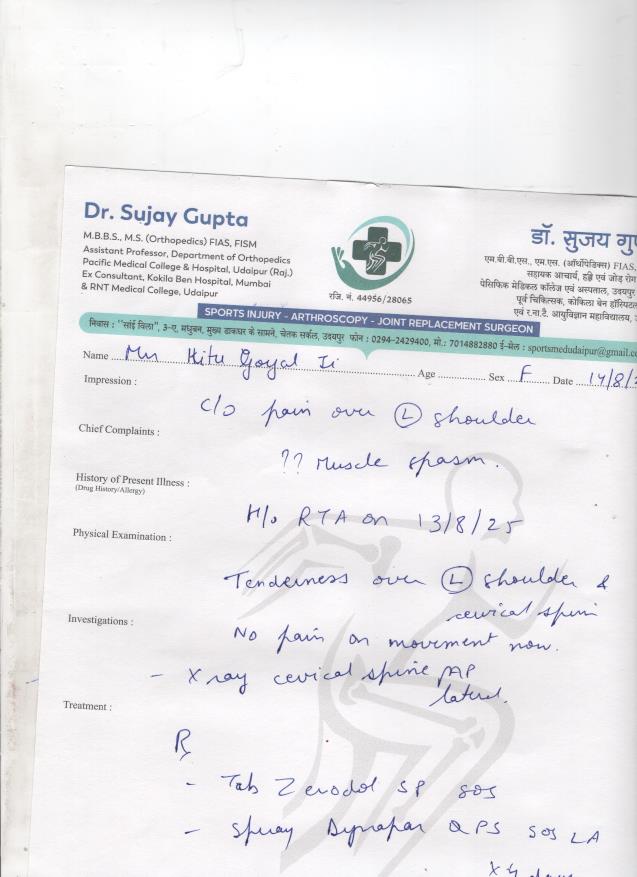 Dr. Sujay Gupta
M.B.B.S., M.S. (Orthopedics) FIAS, FISM
Assistant Professor, Department of Orthopedics
Pacific Medical College & Hospital, Udaipur (Raj.)
Ex Consultant, Kokila Ben Hospital, Mumbai
& RNT Medical College, Udaipur
रजि. नं. 44956/28065
डॉ. सुजय गुप
एम.बी.बी.एस., एम.एस. (ऑर्थोपेडिक्स) FIAS,
सहायक आचार्य, हड्डी एवं जोड़ रोग
पेसिफिक मेडिकल कॉलेज एवं अस्पताल, उदयपुर
पूर्व चिकित्सक, कोकिला बेन हॉस्पिटल
एवं र.ना.टै. आयुर्विज्ञान महाविद्यालय,
SPORTS INJURY - ARTHROSCOPY - JOINT REPLACEMENT SURGEON
निवास : "सांई विला", 3-ए, मधुबन, मुख्य डाकघर के सामने, चेतक सर्कल, उदयपुर फोन : 0294-2429400, मो.: 7014882880 ई-मेल : sportsmedudaipur@gmail.co
Name Mrs Hitu Goyal Ji Age Sex F Date 14/8/2
Impression :
c/o pain over (L) shoulder
Chief Complaints :
?? Muscle spasm.
History of Present Illness :
(Drug History/Allergy)
H/o RTA on 13/8/25
Physical Examination :
Tenderness over (L) shoulder &
cervical spine
Investigations :
No pain on movement now.
- X ray cevical spine AP
lateral.
Treatment :
Rx
- Tab Zerodol SP SOS
- Spray Dynapar QPS SOS LA